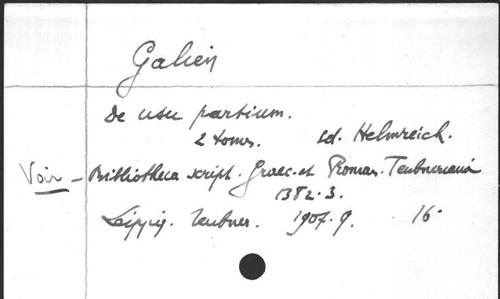 Galien
De usu partium.
2 tomes. ed. Helmreich.
Voir — Bibliotheca script. Graec. et Roman. Teubneriana
1382.3.
Leipzig. Teubner. 1907.9. 16°